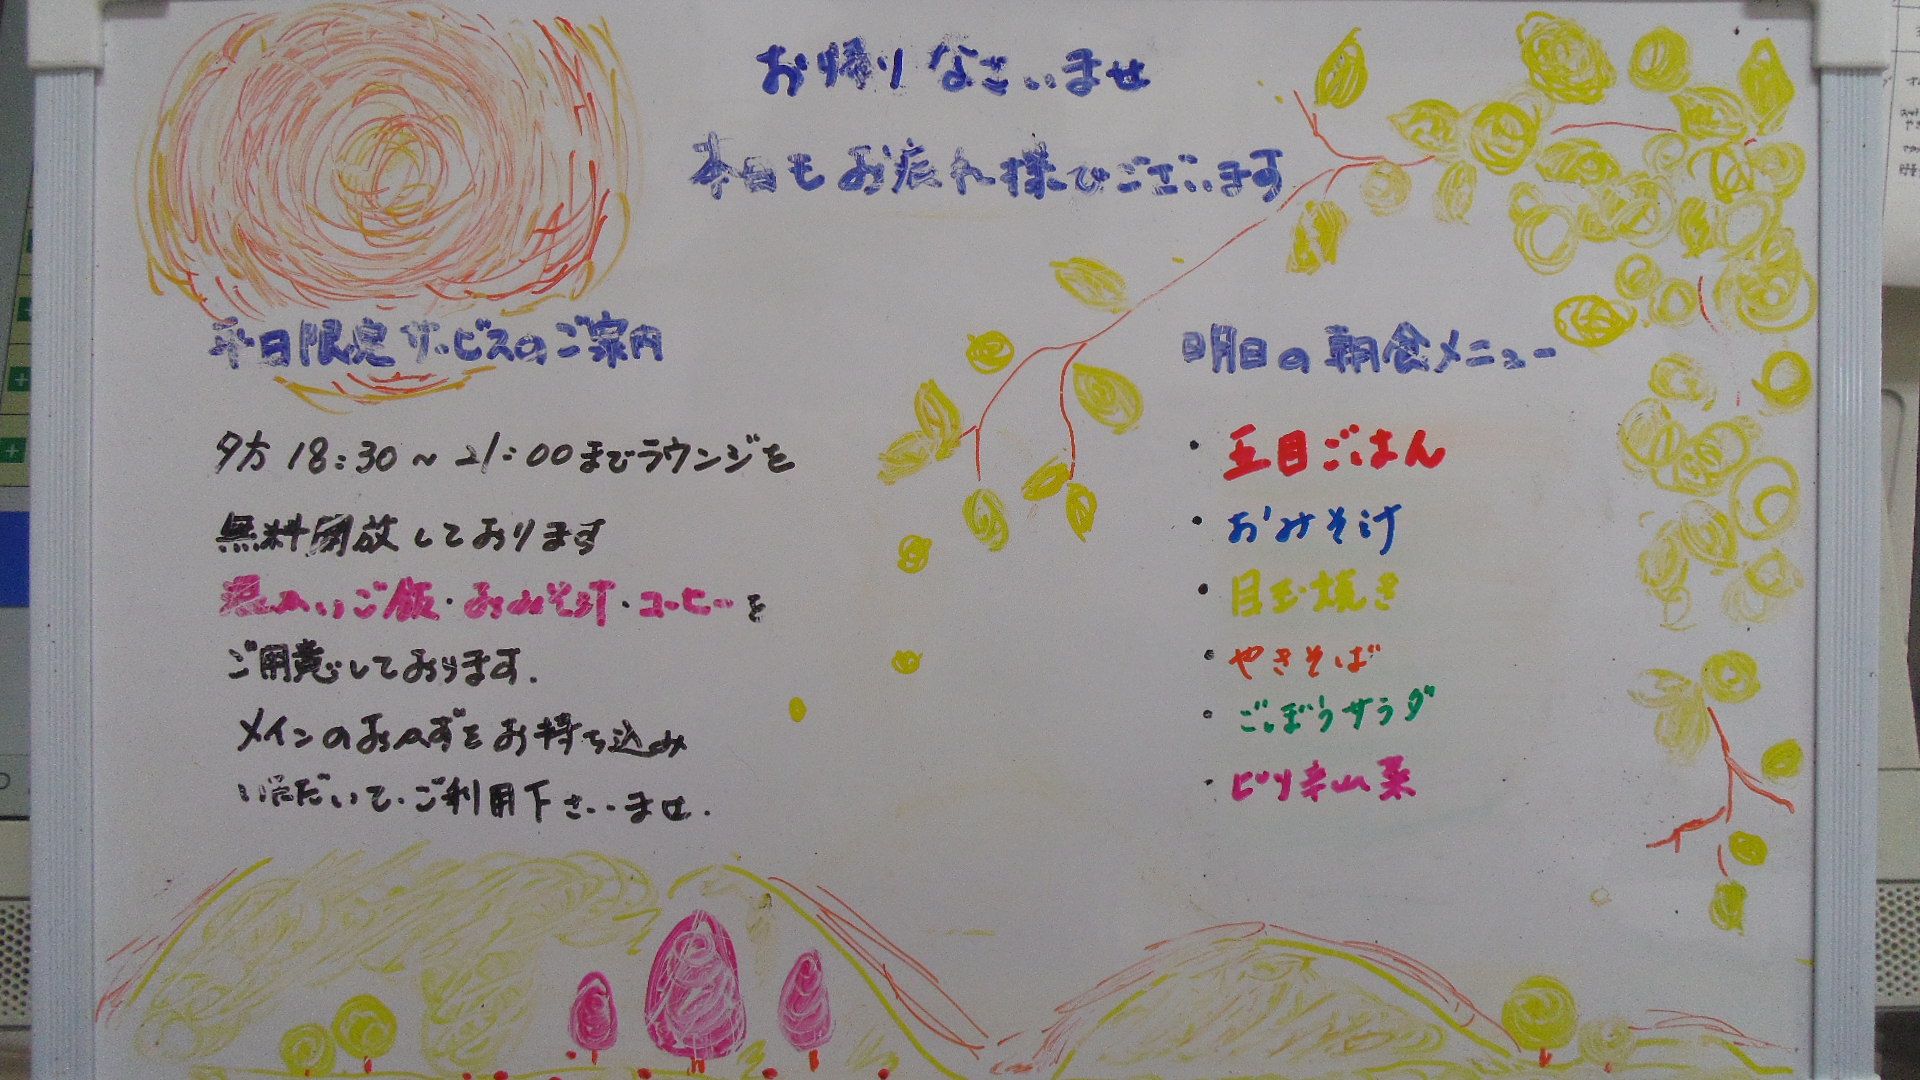 お帰りなさいませ
本日もお疲れ様でございます
平日限定サービスのご案内
夕方 18:30～21:00までラウンジを
無料開放しております
温かいご飯・おみそ汁・コーヒーを
ご用意しております.
メインのおかずをお持ち込み
いただいて、ご利用下さいませ.
明日の朝食メニュー
・五目ごはん
・おみそ汁
・目玉焼き
・やきそば
・ごぼうサラダ
・ピリ辛山菜